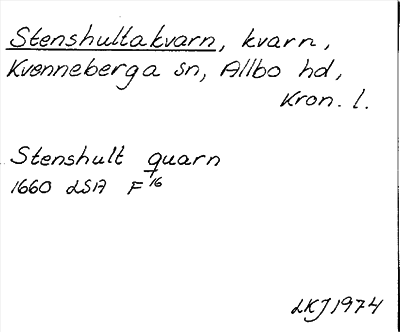 Stenshultakvarn, kvarn,
Kvenneberga sn, Allbo hd,
Kron. l.
Stenshult quarn
1660 LSA F 16
LKJ 1974